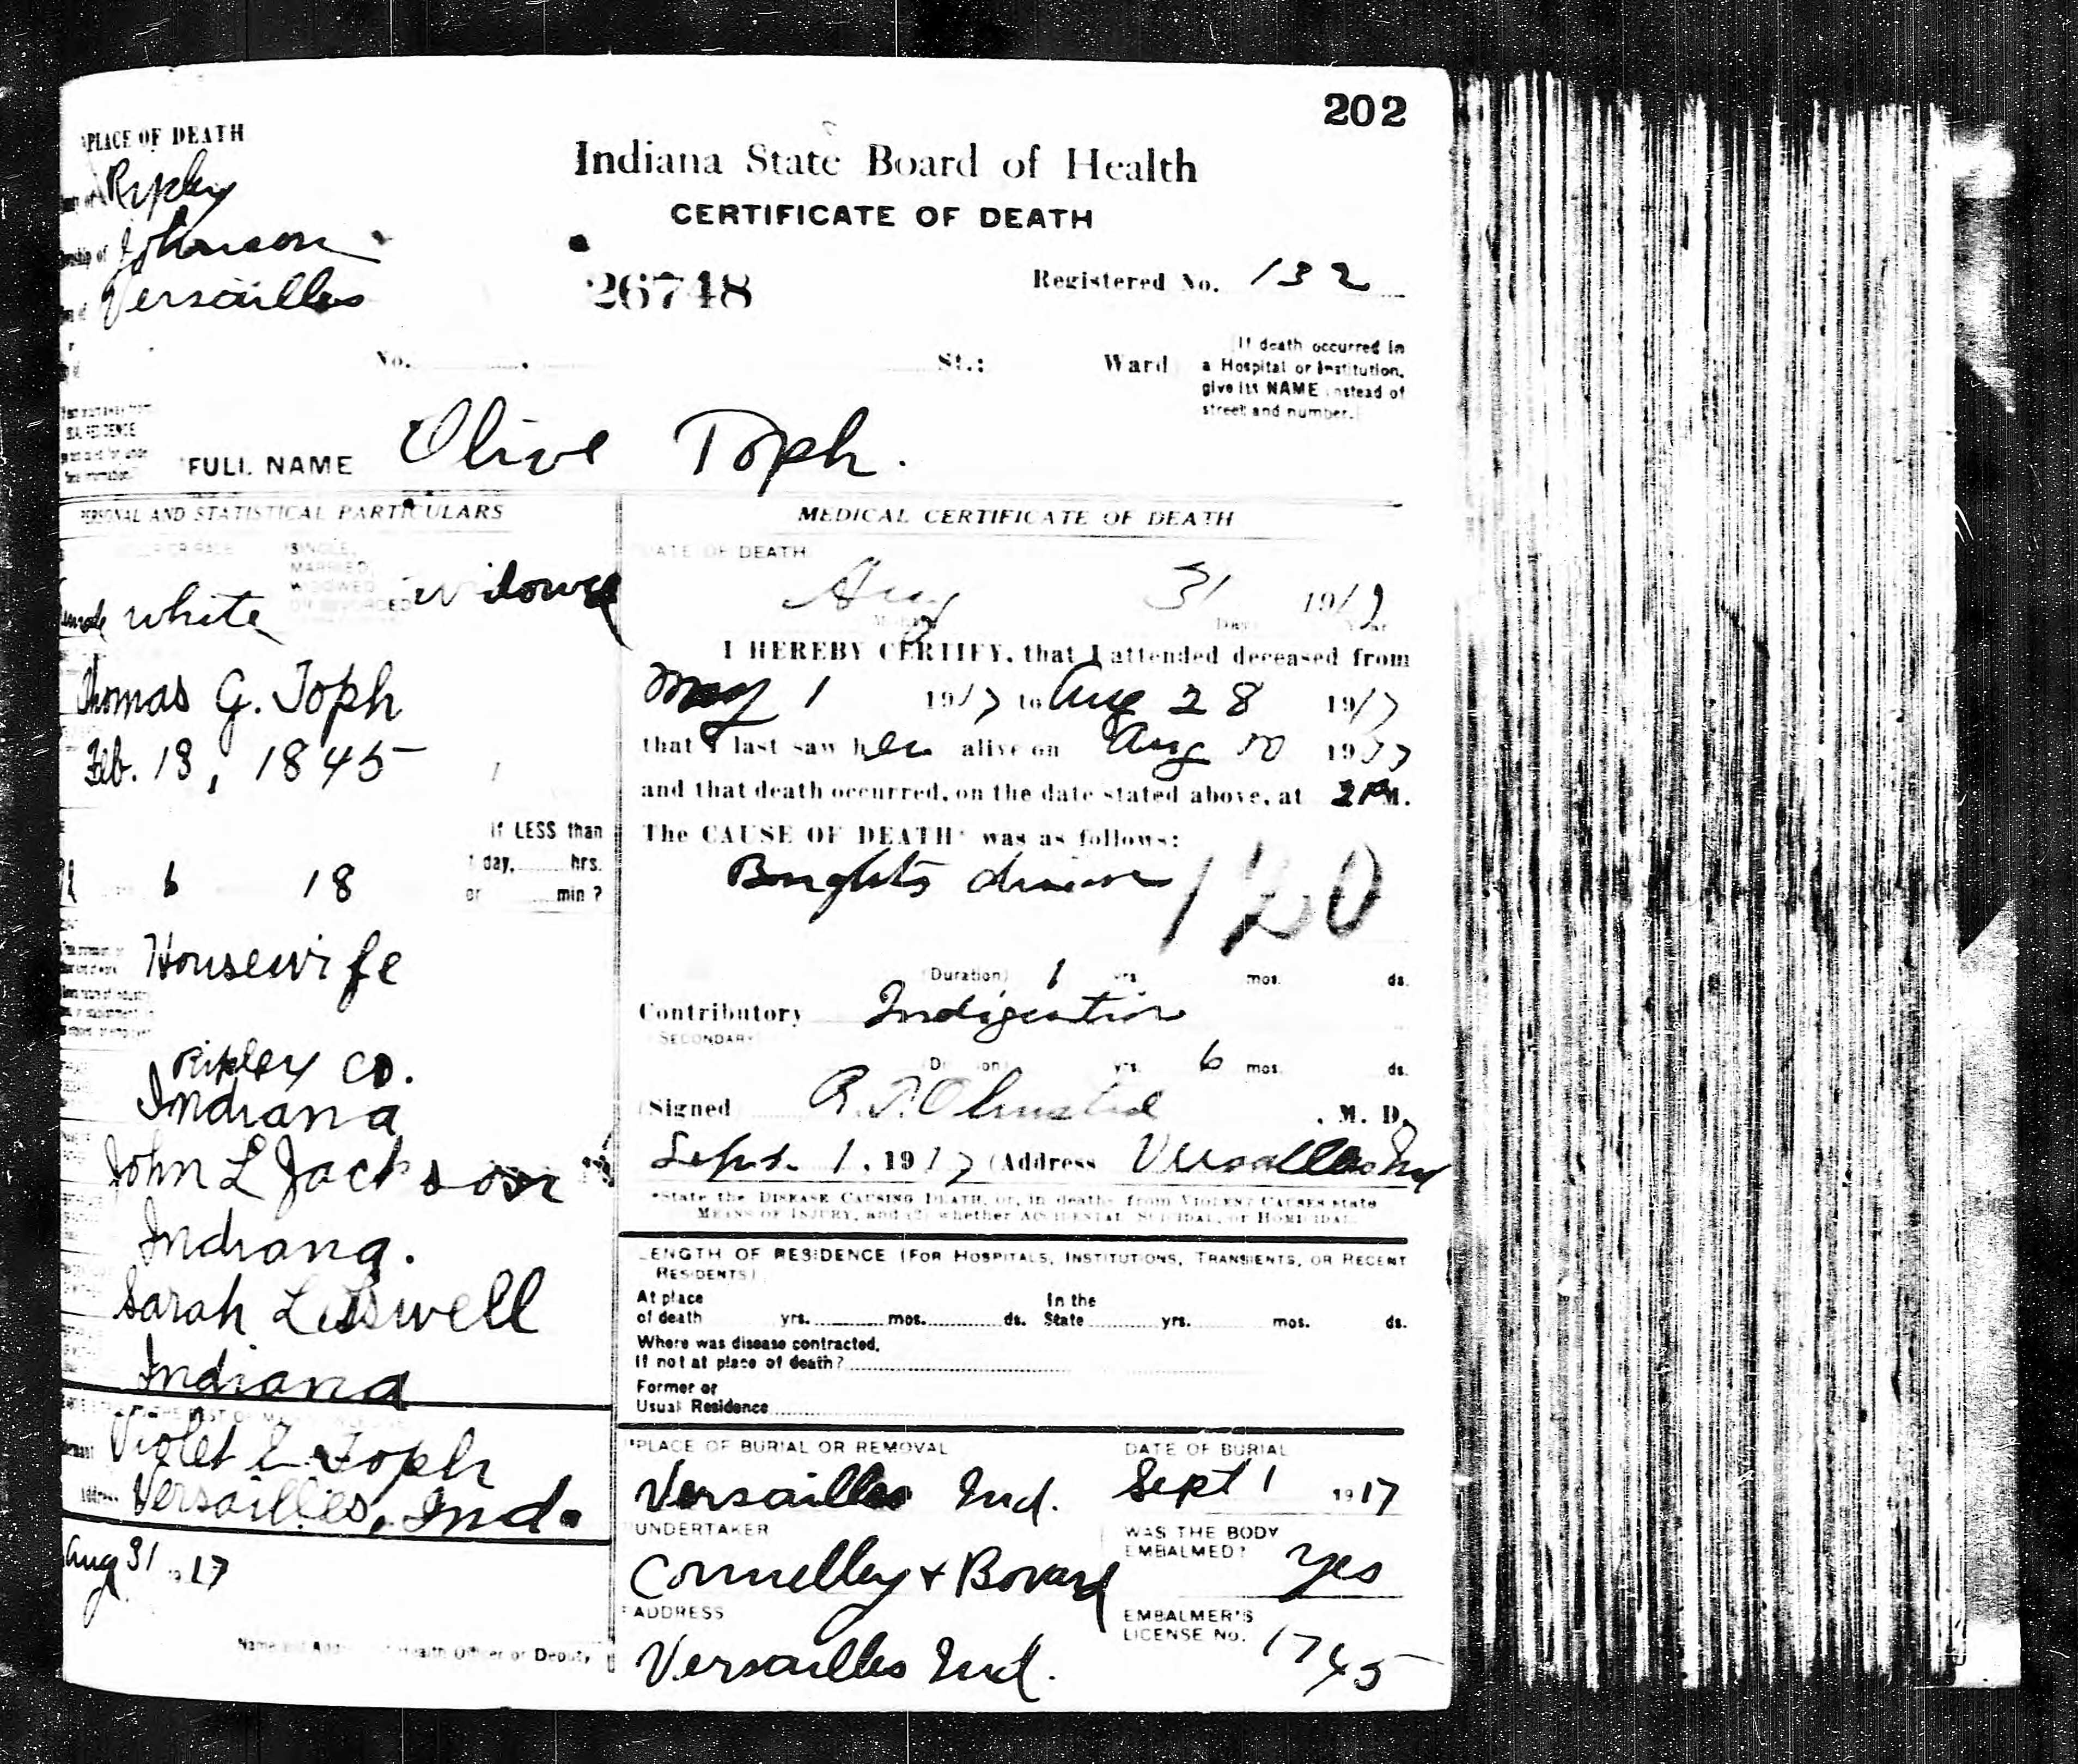 202
PLACE OF DEATH
Indiana State Board of Health
CERTIFICATE OF DEATH
Ripley
Johnson
Versailles
26748
Registered No. 132
No. St.; Ward
If death occurred in
a Hospital or Institution,
give its NAME instead of
street and number.
FULL NAME Olive Toph.
PERSONAL AND STATISTICAL PARTICULARS
SINGLE,
MARRIED,
WIDOWED
OR DIVORCED
white widowed
Thomas G. Toph
Feb. 13, 1845
If LESS than
1 day, hrs.
or min ?
6 18
Housewife
Ripley Co.
Indiana
John L Jackson
Indiana.
Sarah
Indiana
Violet E Toph
Address Versailles, Ind.
Aug 31 1917
Health Officer or Deputy
MEDICAL CERTIFICATE OF DEATH
DATE OF DEATH
Aug 31 1917
I HEREBY CERTIFY, that I attended deceased from
May 1 1917 to Aug 28 1917
that I last saw her alive on Aug 1917
and that death occurred, on the date stated above, at 2 P M.
The CAUSE OF DEATH* was as follows:
Brights disease
120
(Duration) 1 yrs. mos. ds.
Contributory Indigestion
SECONDARY
(Duration) yrs. 6 mos. ds.
(Signed R.T. Olmsted , M. D.
Sept. 1, 1917 (Address Versailles Ind
*State the DISEASE CAUSING DEATH, or, in deaths from VIOLENT CAUSES state
MEANS OF INJURY, and (2) whether ACCIDENTAL, SUICIDAL, or HOMICIDAL.
LENGTH OF RESIDENCE (FOR HOSPITALS, INSTITUTIONS, TRANSIENTS, OR RECENT
RESIDENTS)
At place In the
of death yrs. mos. ds. State yrs. mos. ds.
Where was disease contracted,
If not at place of death?
Former or
Usual Residence
PLACE OF BURIAL OR REMOVAL DATE OF BURIAL
Versailles Ind. Sept 1 1917
UNDERTAKER WAS THE BODY
EMBALMED?
Connelley + Bovard Yes
ADDRESS EMBALMER'S
LICENSE No. 1745
Versailles Ind.